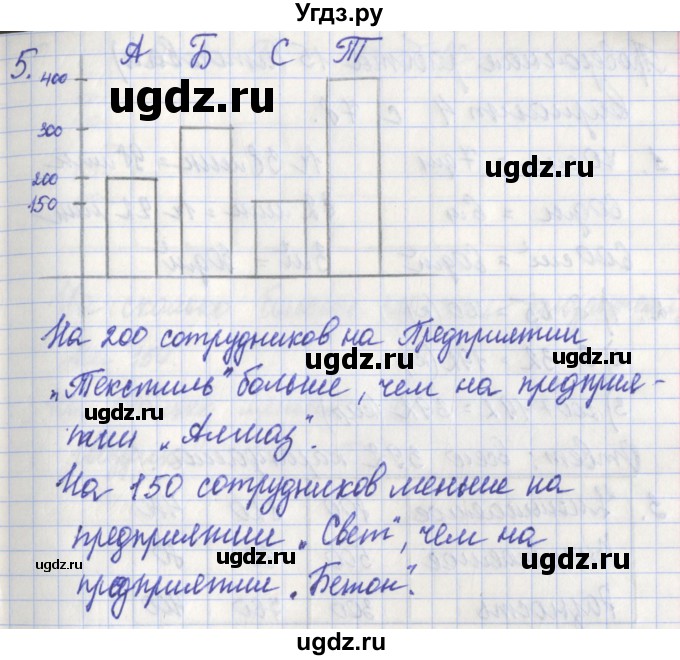 Угдз.ру
5. А Б С Т
400
300
200
150
ugdz.ru
ugdz.ru
ugdz.ru
ugdz.ru
На 200 сотрудников на Предприятии
ugdz.ru
„Текстиль" больше, чем на предприя-
ugdz.ru
тии „Алмаз".
На 150 сотрудников меньше на
предприятии „Свет", чем на
ugdz.ru
ugdz.ru
ugdz.ru
предприятие „Бетон".
ugdz.ru